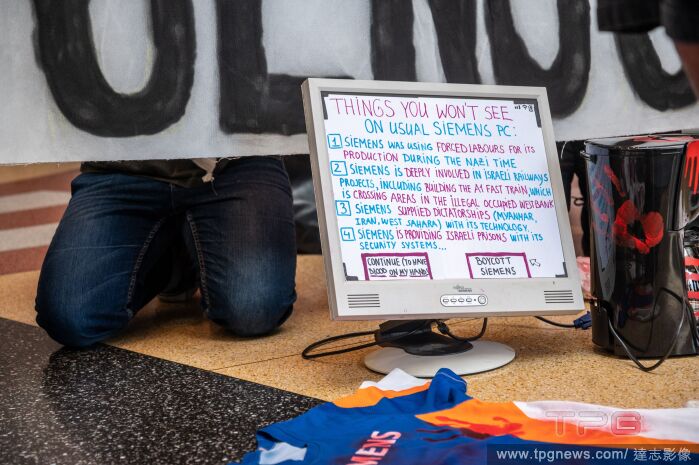 THINGS YOU WON'T SEE
ON USUAL SIEMENS PC:
1 SIEMENS WAS USING FORCED LABOURS FOR ITS
PRODUCTION DURING THE NAZI TIME
2 SIEMENS IS DEEPLY INVOLVED IN ISRAELI RAILWAYS
PROJECTS, INCLUDING BUILDING THE A1 FAST TRAIN, WHICH
IS CROSSING AREAS IN THE ILLEGAL OCCUPIED WESTBANK
3 SIEMENS SUPPLIED DICTATORSHIPS (MYANMAR,
IRAN, WEST SAHARA) WITH ITS TECHNOLOGY.
4 SIEMENS IS PROVIDING ISRAELI PRISONS WITH ITS
SECURITY SYSTEMS...
CONTINUE (TO HAVE
BLOOD ON MY HANDS)
BOYCOTT
SIEMENS
SIEMENS
TPG
www.tpgnews.com / 達志影像